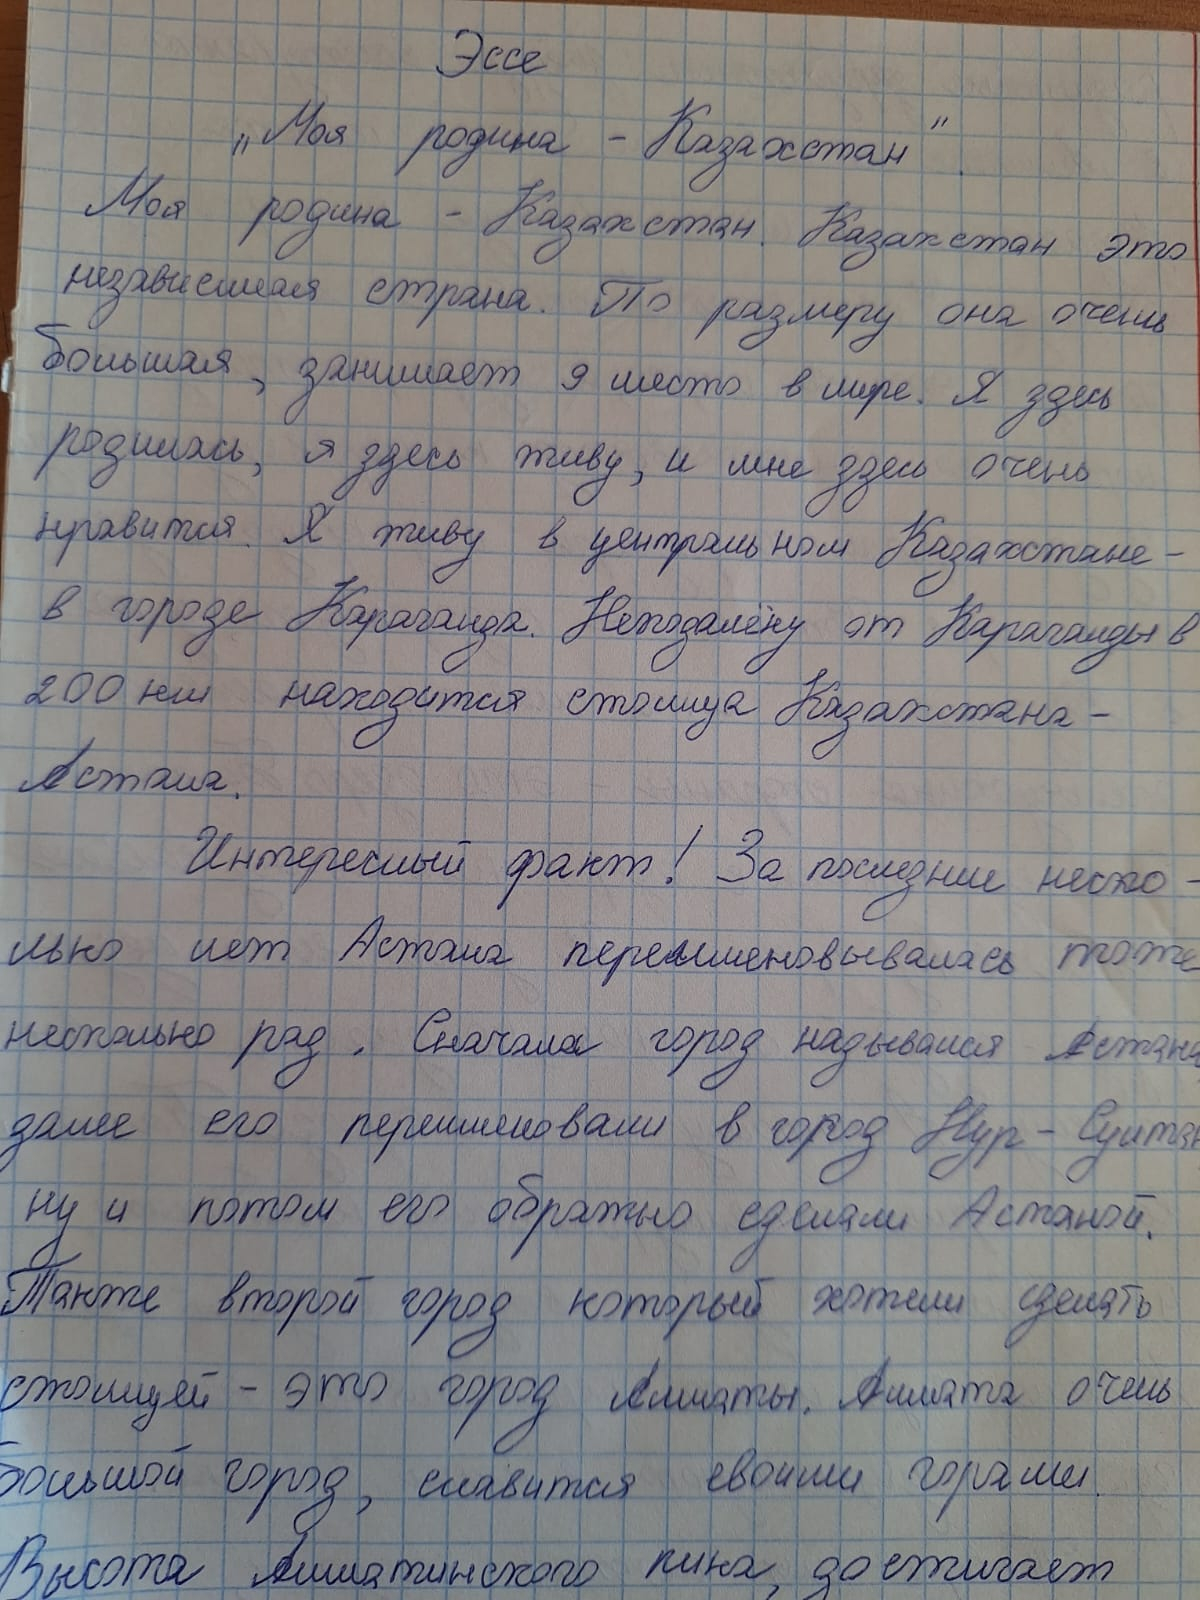 Эссе
„Моя родина - Казахстан".
Моя родина - Казахстан. Казахстан это
независимая страна. По размеру она очень
большая, занимает 9 место в мире. Я здесь
родилась, я здесь живу, и мне здесь очень
нравится. Я живу в центральном Казахстане -
в городе Караганда. Неподалёку от Караганды в
200 км находится столица Казахстана -
Астана.
Интересный факт! За последние неско-
лько лет Астана переименовывалась тоже
несколько раз. Сначала город назывался Астана
далее его переименовали в город Нур-Султан
ну и потом его обратно сделали Астаной.
Также второй город который хотели сделать
столицей - это город Алматы. Алмата очень
большой город, славится своими горами.
Высота Алматинского пика, достигает